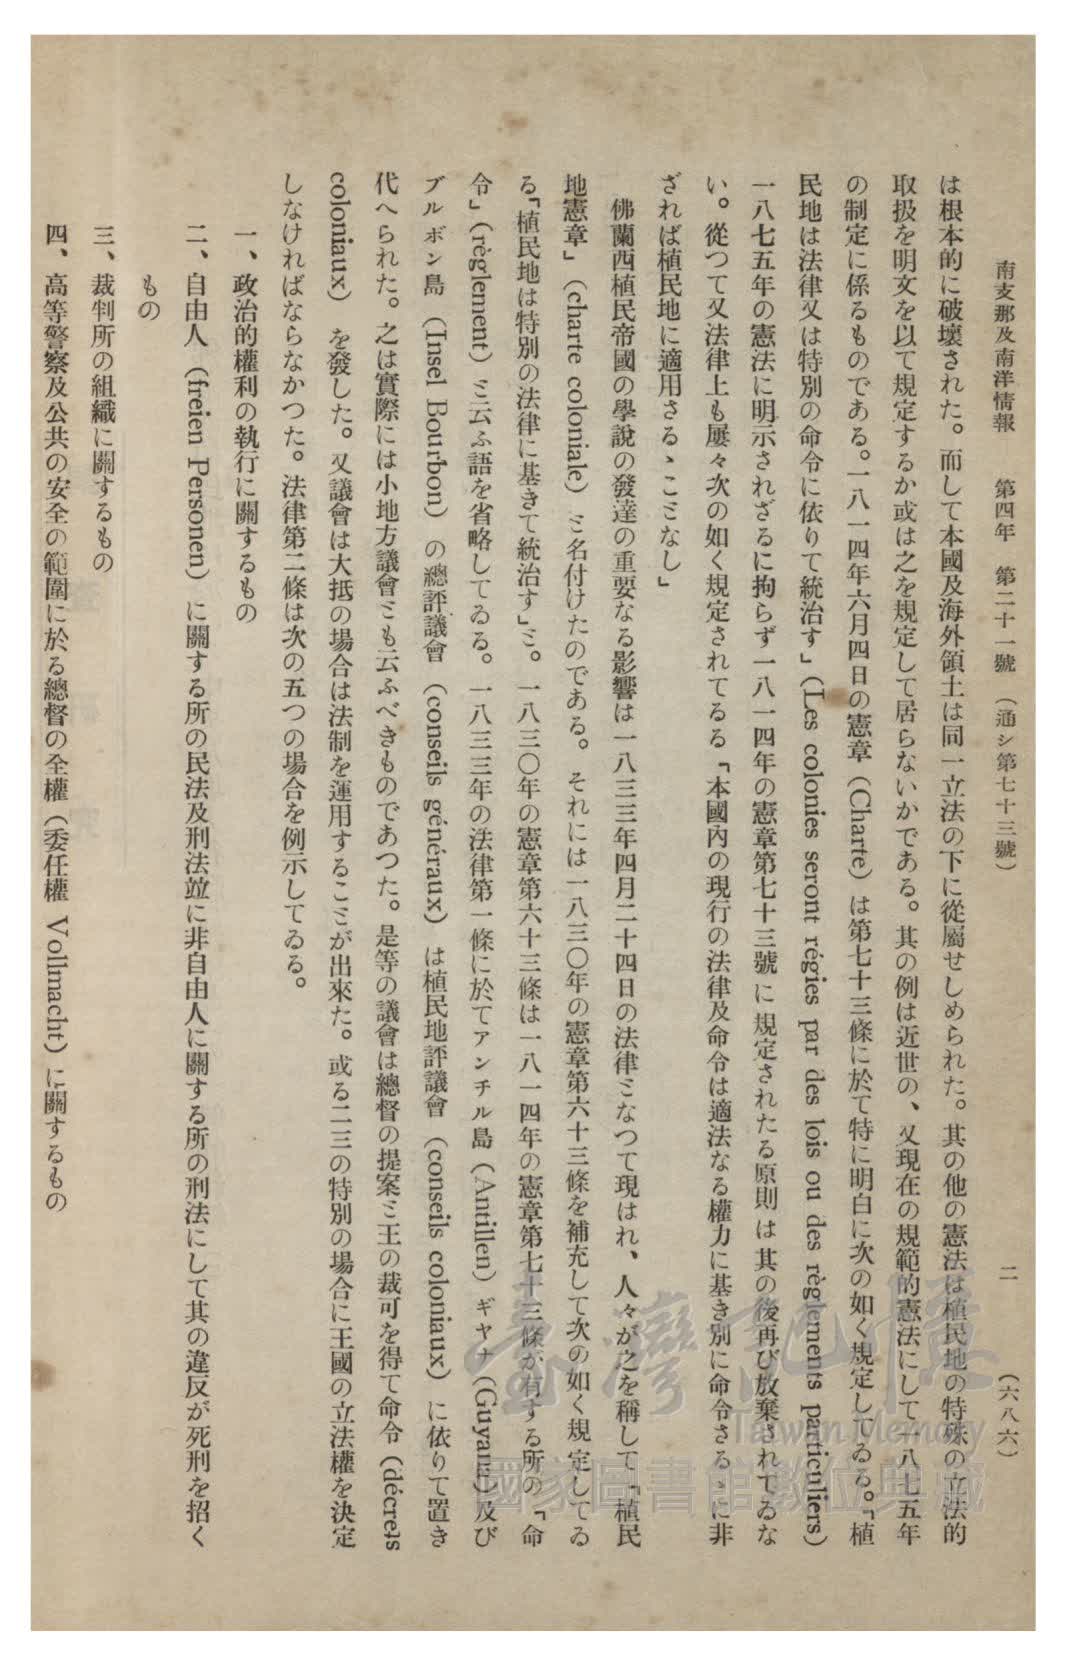 南支那及南洋情報　第四年　第二十一號　（通シ第七十三號）　二　（六八六）
は根本的に破壞された。而して本國及海外領土は同一立法の下に從屬せしめられた。其の他の憲法は植民地の特殊の立法的
取扱を明文を以て規定するか或は之を規定して居らないかである。其の例は近世の、又現在の規範的憲法にして一八七五年
の制定に係るものである。一八一四年六月四日の憲章（Charte）は第七十三條に於て特に明白に次の如く規定してゐる。「植
民地は法律又は特別の命令に依りて統治す」（Les colonies seront régies par des lois ou des règlements particuliers）
一八七五年の憲法に明示されざるに拘らず一八一四年の憲章第七十三號に規定されたる原則は其の後再び放棄されてゐな
い。從つて又法律上も屢々次の如く規定されてるる「本國內の現行の法律及命令は適法なる權力に基き別に命令さるゝに非
ざれば植民地に適用さるゝことなし」
佛蘭西植民帝國の學說の發達の重要なる影響は一八三三年四月二十四日の法律となつて現はれ、人々が之を稱して「植民
地憲章」（charte coloniale）と名付けたのである。それには一八三〇年の憲章第六十三條を補充して次の如く規定してゐ
る「植民地は特別の法律に基きて統治す」と。一八三〇年の憲章第六十三條は一八一四年の憲章第七十三條が有する所の「命
令」（règlement）と云ふ語を省略してゐる。一八三三年の法律第一條に於てアンチル島（Antillen）ギヤナ（Guyana）及び
ブルボン島（Insel Bourbon）の總評議會（conseils généraux）は植民地評議會（conseils coloniaux）に依りて置き
代へられた。之は實際には小地方議會とも云ふべきものであつた。是等の議會は總督の提案と王の裁可を得て命令（décrets
coloniaux）を發した。又議會は大抵の場合は法制を運用することが出來た。或る二三の特別の場合に王國の立法權を決定
しなければならなかつた。法律第二條は次の五つの場合を例示してゐる。
一、政治的權利の執行に關するもの
二、自由人（freien Personen）に關する所の民法及刑法竝に非自由人に關する所の刑法にして其の違反が死刑を招く
もの
三、裁判所の組織に關するもの
四、高等警察及公共の安全の範圍に於る總督の全權（委任權 Vollmacht）に關するもの
臺灣記憶
Taiwan Memory
國家圖書館數位典藏